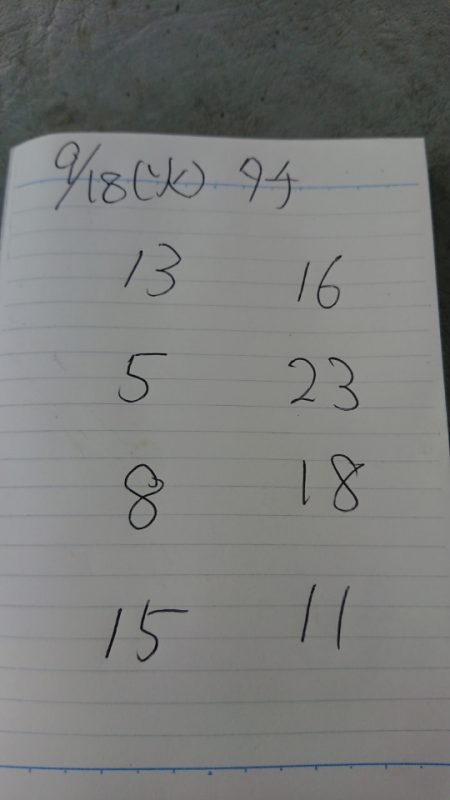 9/18(火)
13 16
5 23
8 18
15 11